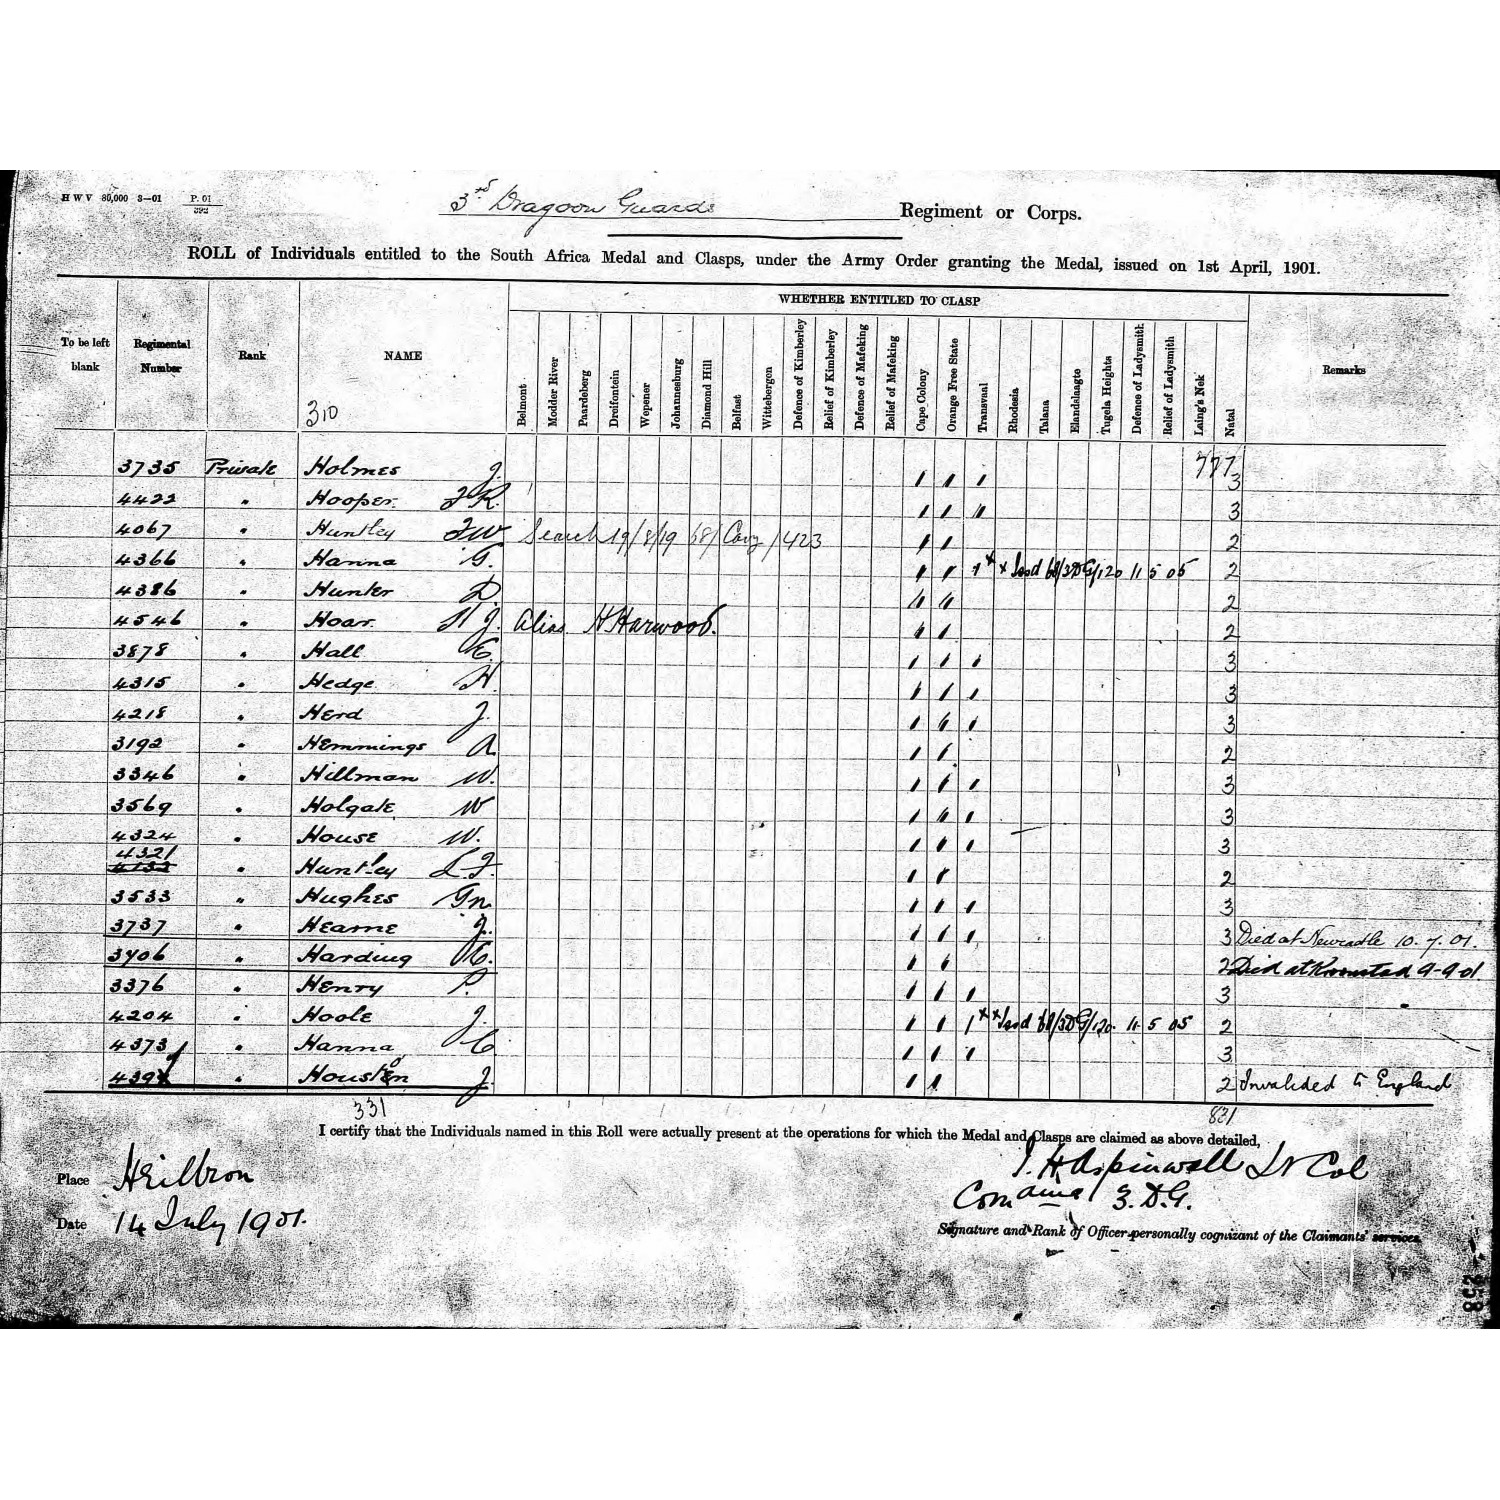 H W V 80,000 3—01 P. 01
392
3rd Dragoon Guards Regiment or Corps.
ROLL of Individuals entitled to the South Africa Medal and Clasps, under the Army Order granting the Medal, issued on 1st April, 1901.
WHETHER ENTITLED TO CLASP
To be left blank Regimental Number Rank NAME Belmont Modder River Paardeberg Dreifontein Wepener Johannesburg Diamond Hill Belfast Wittebergen Defence of Kimberley Relief of Kimberley Defence of Mafeking Relief of Mafeking Cape Colony Orange Free State Transvaal Rhodesia Talana Elandslaagte Tugela Heights Defence of Ladysmith Relief of Ladysmith Laing's Nek Natal Remarks
310
777
3735 Private Holmes J. 1 1 1 3
4422 " Hooper 1 1 11 3
4067 " Huntley Search 19/8/19 68/Cavy/423 1 1 2
4366 " Hanna G. 1 1 1 x x Issd 68/3DG/120 11 5 05 2
4386 " Hunter D 11 11 2
4546 " Hoar H J. Alias H Harwood. 1 1 2
3878 " Hall E. 1 1 1 3
4315 " Hedge H. 1 1 1 3
4218 " Herd J. 1 1 1 3
3192 " Hemmings A 1 1 2
3346 " Hillman W. 1 1 1 3
3569 " Holgate W 1 1 1 3
4324 " House W. 1 1 1 3
4321 " Huntley 1 1 2
3533 " Hughes 1 1 1 3
3737 " Hearne J. 1 1 1 3 Died at Newcastle 10.7.01.
3406 " Harding C. 1 1 2 Died at Kroonstad 9-9 01
3376 " Henry P. 1 1 1 3
4204 " Hoole J. 1 1 1 x x Issd 68/3DG/120. 11 5 05 2
4373 " Hanna C 1 1 1 3
" Houston J. 1 1 2 Invalided to England
331 831
I certify that the Individuals named in this Roll were actually present at the operations for which the Medal and Clasps are claimed as above detailed,
Place Heilbron
J. H Aspinwall Lt Col
Date 14 July 1901.
3. D.G.
Signature and Rank of Officer personally cognizant of the Claimants' services.
258